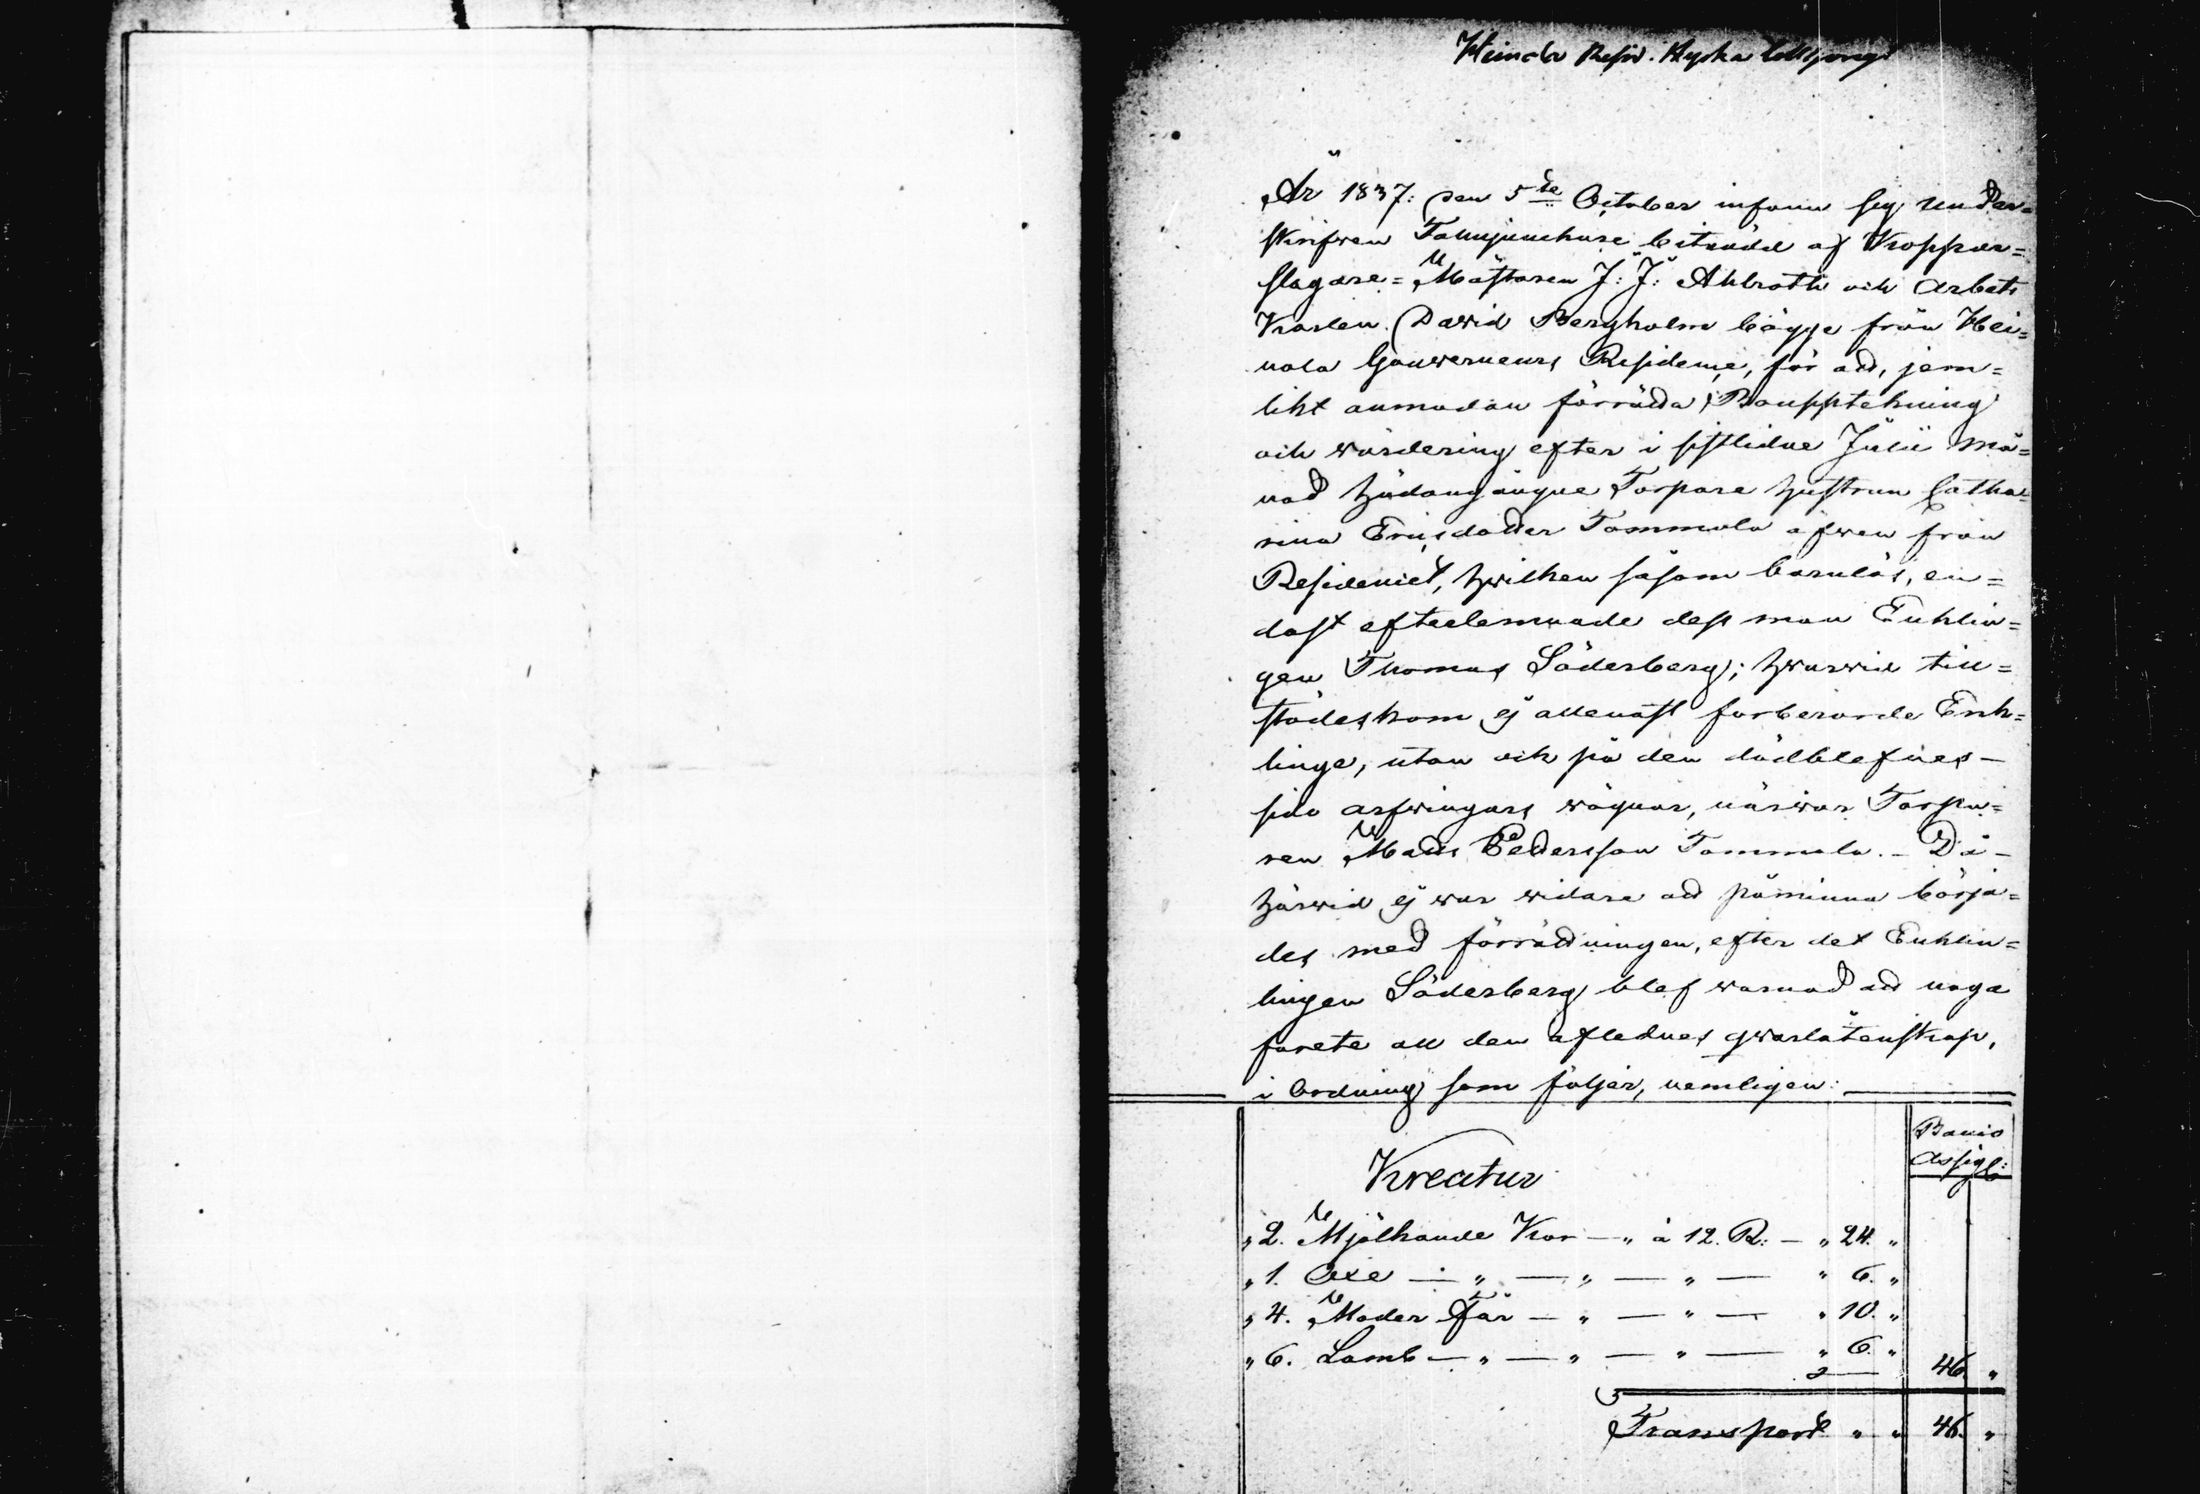 År 1837: den 5te October infann sig under=
skrifwen Tolluppumhare biträdd af Koppar=
slagare=Mästaren J: J: Ahlroth och Arbets
Karlen David Bergholm bägge från Hei=
nola Gouverneurs Residence, för att, jem=
likt anmodan förrätta Bouppteckning
och wärdering efter i sistlidne Julii må=
nad hädangångne Torpare hustrun Catha=
rina Ericsdotter Tommola äfwen från
Residencet, hwilken såsom barnlös, en=
dast efterlemnade dess man Enklin=
gen Thomas Söderberg; hwarwid till=
städeskom ej allenast förberörde Enk=
linge, utan ock på den dödblefnes—
sido arfwingars wägnar, närwar Torpa=
ren Matts Pettersson Tommola. — Då —
härwid ej war widare att påminna börja=
des med förrättningen, efter det Enklin=
lingen Söderberg blef warnad att noga
förete all den aflednes qwarlåtenskap,
i ordning som följer, nemligen:
Banco
Assigt:
Kreatur
" 2. Mjölkande Kor — " à 12. R: — " 24. "
" 1. Oxe — " — " — " — " 6. "
" 4. Moder Får — " — " — " 10. "
" 6. Lamb — " — " — " — " 6. " 46. "
Transport " " 46. "